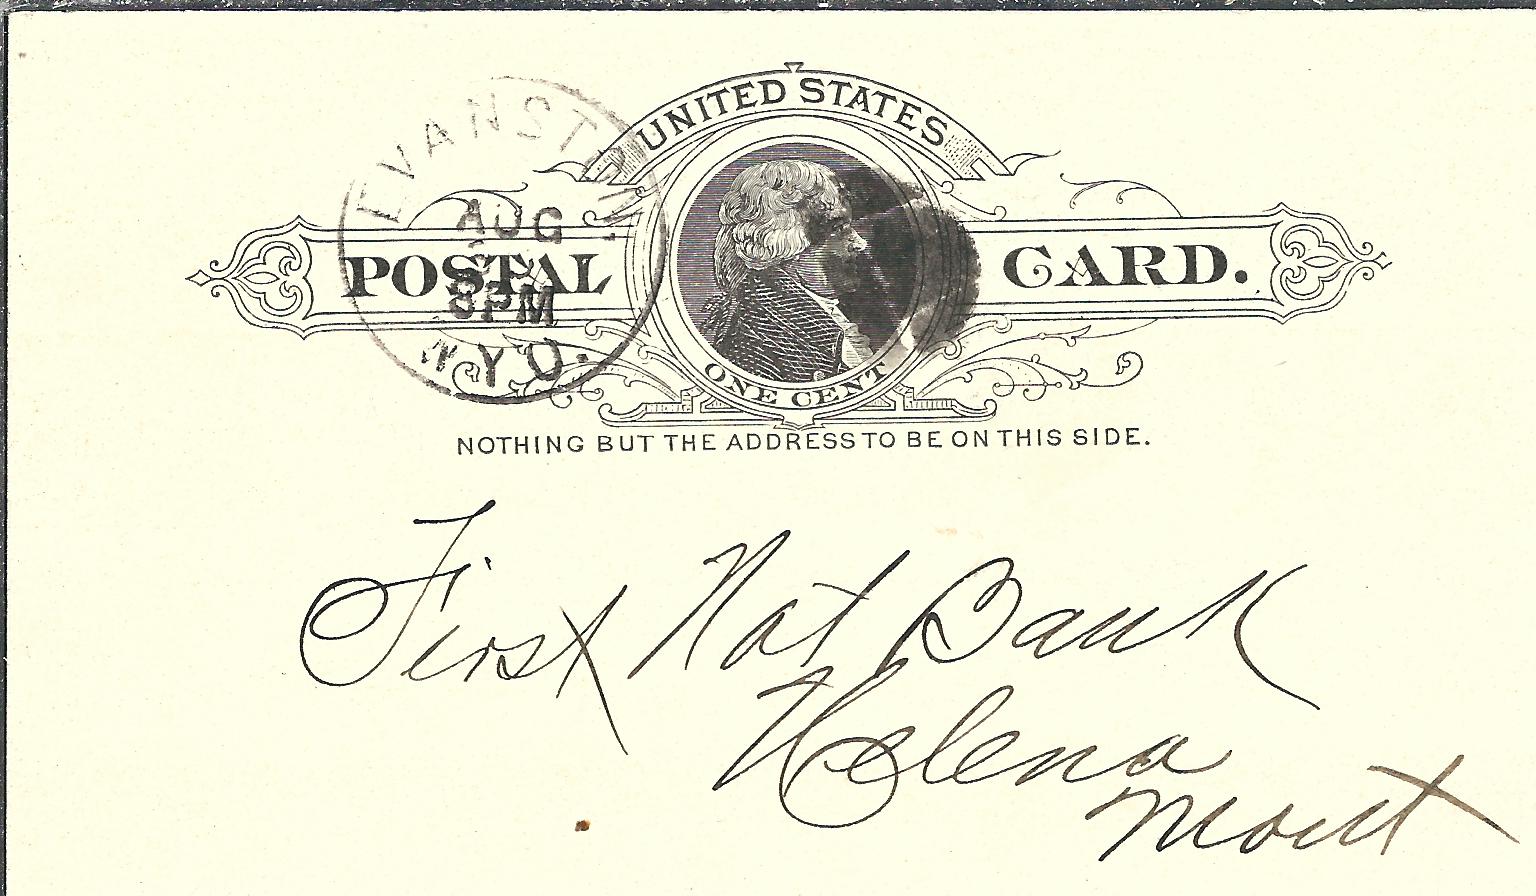 UNITED STATES
POSTAL CARD.
ONE CENT
EVANSTON
AUG
8PM
WYO.
NOTHING BUT THE ADDRESS TO BE ON THIS SIDE.
First Nat Bank
Helena
Mont